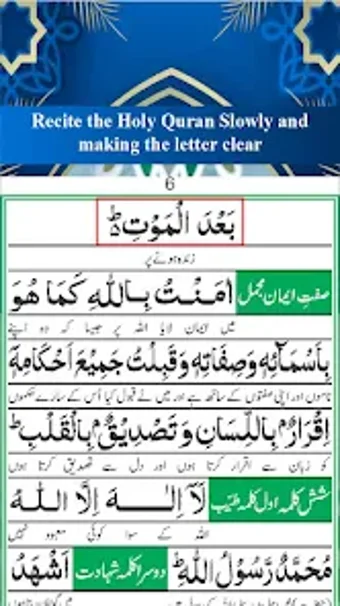 Recite the Holy Quran Slowly and
making the letter clear
6
بَعْدَ الْمَوْتِ ؕ
زندہ ہونے پر
صفتِ ایمان مجمل اٰمَنْتُ بِاللّٰهِ كَمَا هُوَ
میں ایمان لایا اللہ پر جیسا کہ وہ اپنے
بِاَسْمَآئِهٖ وَصِفَاتِهٖ وَقَبِلْتُ جَمِيْعَ اَحْكَامِهٖ
ناموں اور اپنی صفتوں کے ساتھ ہے اور میں نے قبول کیا اُس کے سارے حکموں
اِقْرَارٌۢ بِاللِّسَانِ وَتَصْدِيْقٌۢ بِالْقَلْبِ ؕ
کو زبان سے اقرار کرتا ہوں اور دل سے تصدیق کرتا ہوں
شش کلمہ اول کلمہ طیّب لَآ اِلٰهَ اِلَّا اللّٰهُ
اللہ کے سوا کوئی معبود نہیں
مُحَمَّدٌ رَّسُوْلُ اللّٰهِ ؕ دوسرا کلمہ شہادت اَشْهَدُ